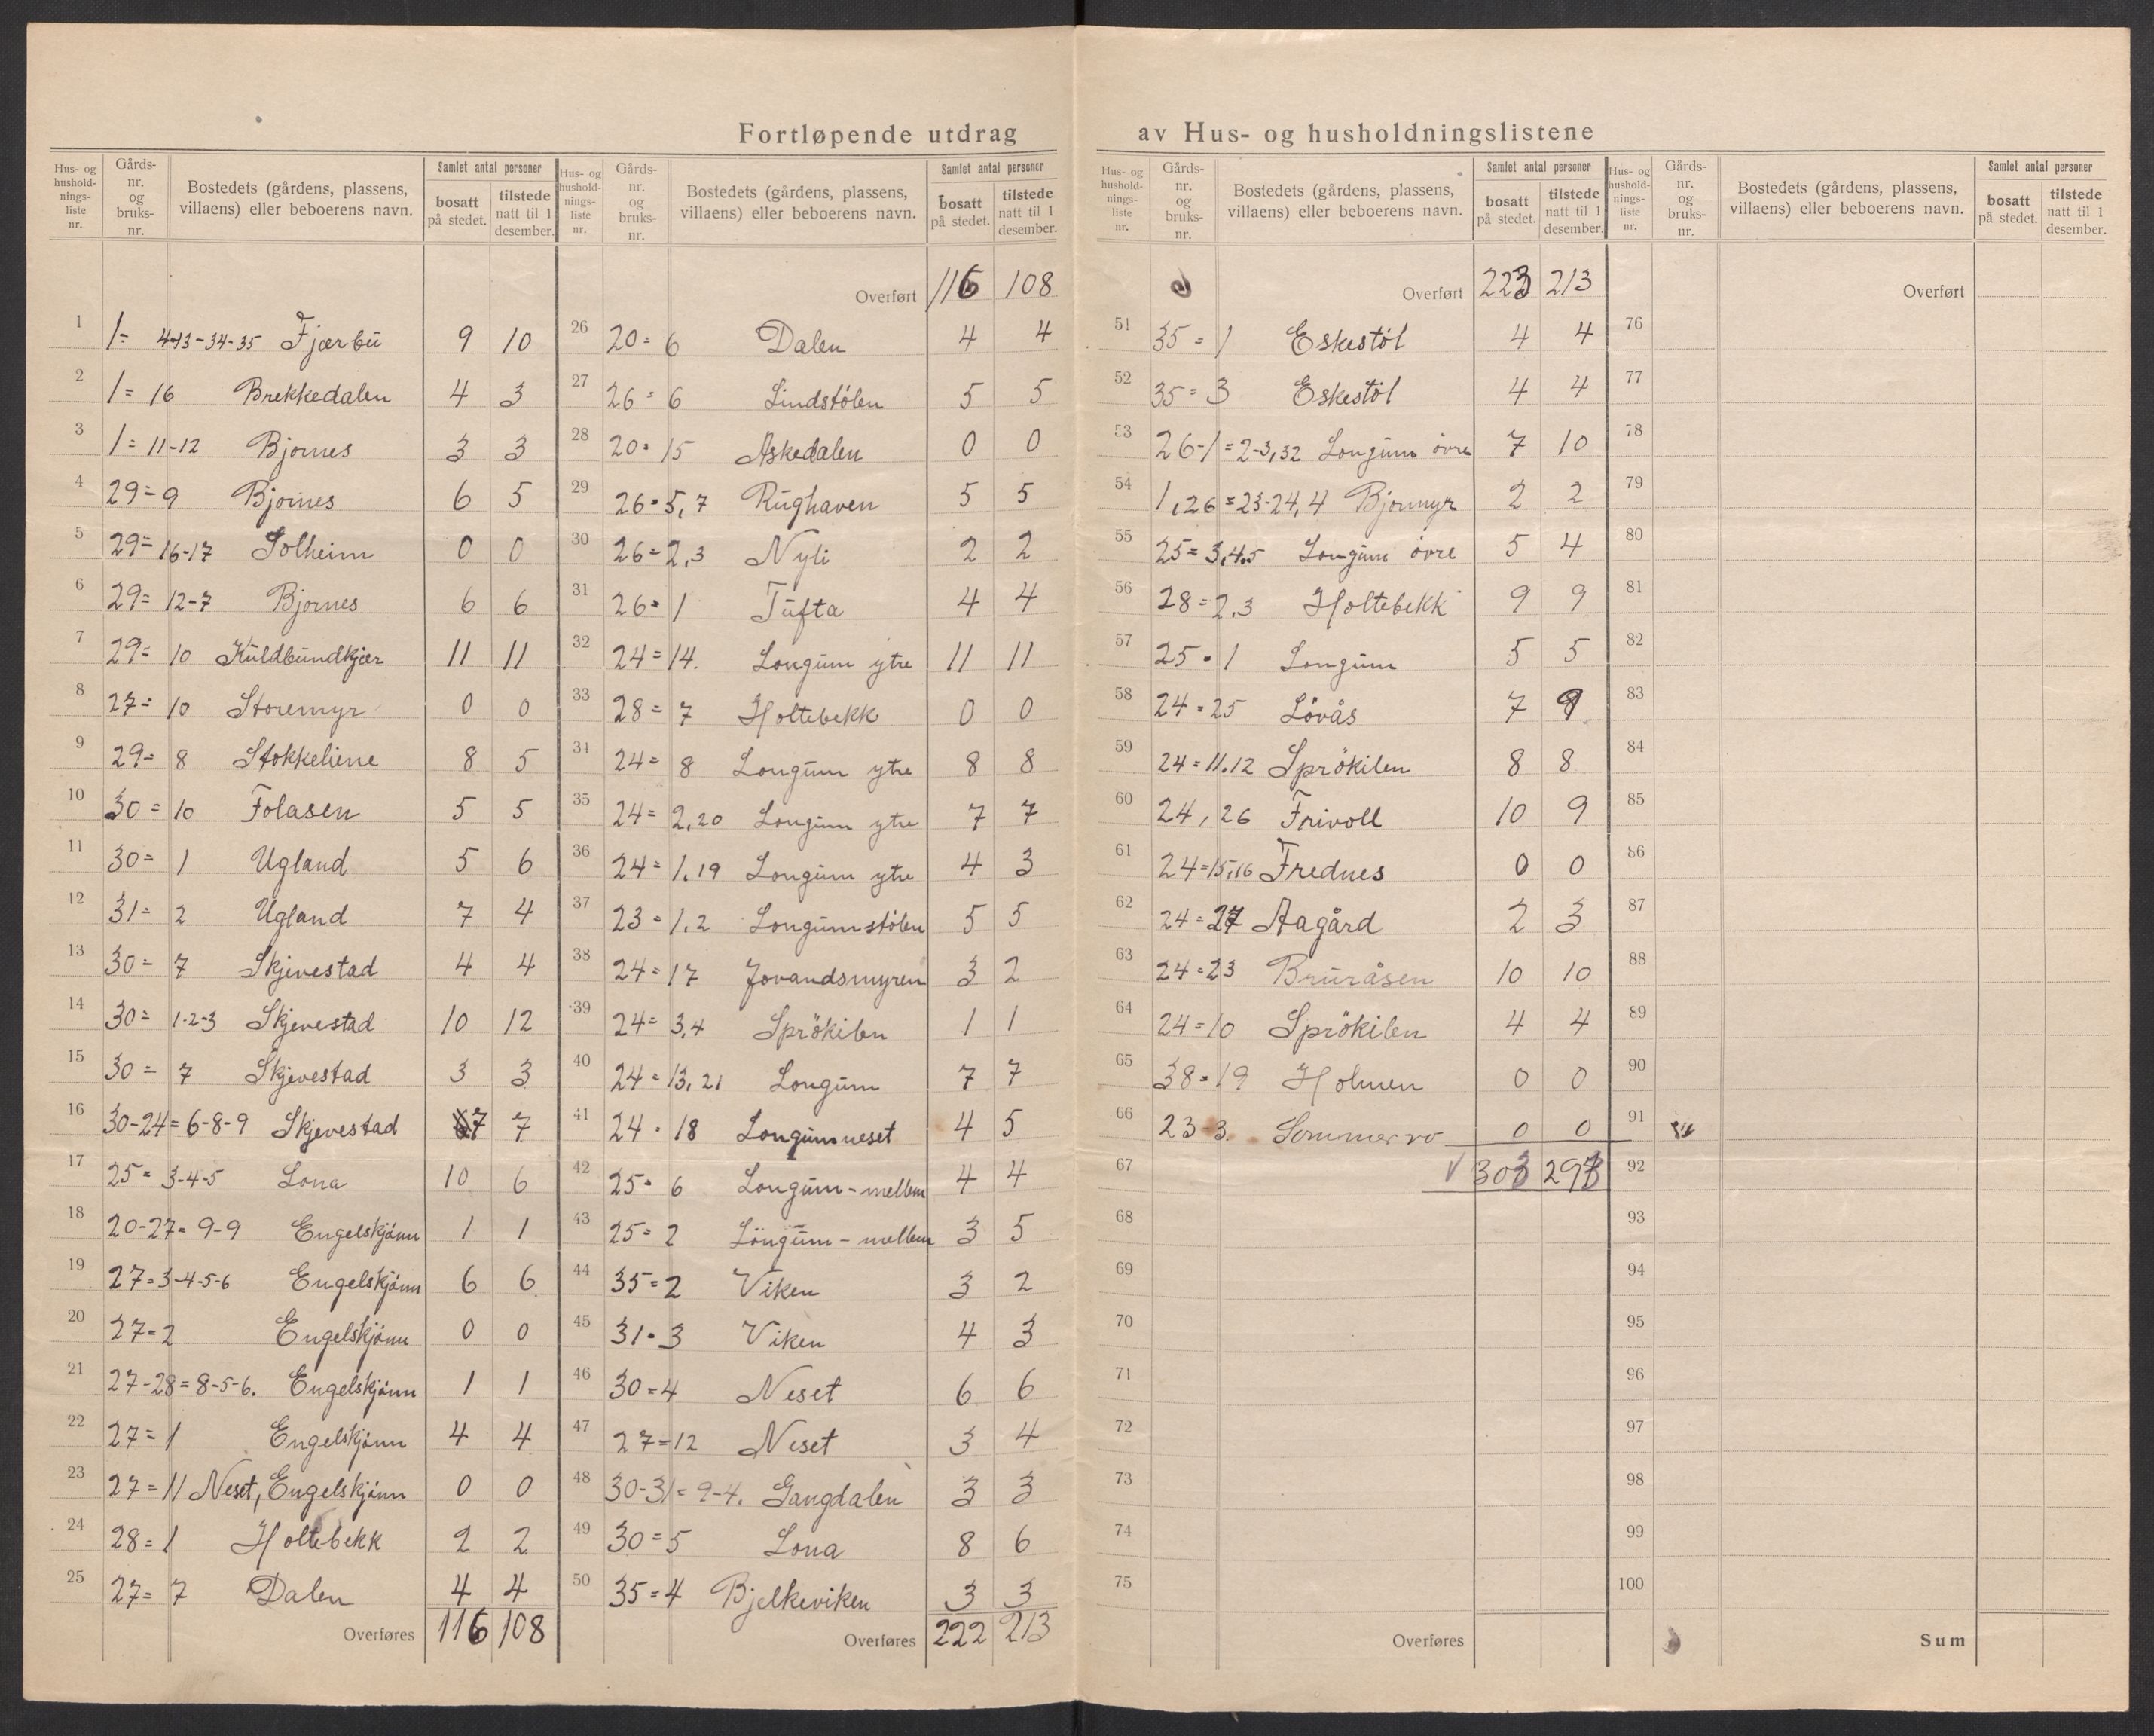 Fortløpende utdrag av Hus- og husholdningslistene
Hus- og hushold-nings-liste nr. Gårds-nr. og bruks-nr. Bostedets (gårdens, plassens, villaens) eller beboerens navn. Samlet antal personer bosatt på stedet. tilstede natt til 1 desember.
1 1= 4-13-34-35 Fjærbu 9 10
2 1= 16 Brekkedalen 4 3
3 1= 11-12 Bjornes 3 3
4 29=9 Bjornes 6 5
5 29=16-17 Solheim 0 0
6 29= 12-7 Bjornes 6 6
7 29= 10 Kuldbundkjær 11 11
8 27= 10 Storemyr 0 0
9 29= 8 Stokkeliene 8 5
10 30= 10 Folasen 5 5
11 30= 1 Ugland 5 6
12 31= 2 Ugland 7 4
13 30= 7 Skjevestad 4 4
14 30= 1-2-3 Skjevestad 10 12
15 30= 7 Skjevestad 3 3
16 30-24=6-8-9 Skjevestad 7 7
17 25= 3-4-5 Lona 10 6
18 20-27=9-9 Engelskjønn 1 1
19 27=3-4-5-6 Engelskjønn 6 6
20 27=2 Engelskjønn 0 0
21 27-28=8-5-6. Engelskjønn 1 1
22 27=1 Engelskjønn 4 4
23 27=11 Neset, Engelskjønn 0 0
24 28=1 Holtebekk 2 2
25 27= 7 Dalen 4 4
Overføres 116 108
Hus- og hushold-nings-liste nr. Gårds-nr. og bruks-nr. Bostedets (gårdens, plassens, villaens) eller beboerens navn. Samlet antal personer bosatt på stedet. tilstede natt til 1 desember.
Overført 116 108
26 20=6 Dalen 4 4
27 26=6 Lindstølen 5 5
28 20=15 Askedalen 0 0
29 26=5,7 Rughaven 5 5
30 26=2,3 Nyli 2 2
31 26=1 Tufta 4 4
32 24=14. Longum ytre 11 11
33 28=7 Holtebekk 0 0
34 24=8 Longum ytre 8 8
35 24=2,20 Longum ytre 7 7
36 24=1,19 Longum ytre 4 3
37 23=1,2 Longumstølen 5 5
38 24=17 Jovandsmyren 3 2
39 24=3,4 Sprökilen 1 1
40 24=13,21 Longum 7 7
41 24=18 Longumneset 4 5
42 25=6 Longum-mellem 4 4
43 25=2 Longum-mellem 3 5
44 35=2 Viken 3 2
45 31=3 Viken 4 3
46 30=4 Neset 6 6
47 27=12 Neset 3 4
48 30-31=9-4. Gangdalen 3 3
49 30=5 Lona 8 6
50 35=4 Bjelkeviken 3 3
Overføres 222 213
Hus- og hushold-nings-liste nr. Gårds-nr. og bruks-nr. Bostedets (gårdens, plassens, villaens) eller beboerens navn. Samlet antal personer bosatt på stedet. tilstede natt til 1 desember.
Overført 223 213
51 35=1 Eskestøl 4 4
52 35=3 Eskestøl 4 4
53 26-1=2-3,32 Longum øvre 7 10
54 1,26=23-24,4 Bjormyr 2 2
55 25=3,4.5 Longum øvre 5 4
56 28=2,3 Holtebekk 9 9
57 25=1 Longum 5 5
58 24=25 Lövås 7
59 24=11.12 Sprökilen 8 8
60 24,26 Frivoll 10 9
61 24=15,16 Frednes 0 0
62 24=27 Aagård 2 3
63 24=23 Bruråsen 10 10
64 24=10 Sprökilen 4 4
65 38=19 Holmen 0 0
66 23 3. Sommerro 0 0
67 303 293
68
69
70
71
72
73
74
75
Overføres
Hus- og hushold-nings-liste nr. Gårds-nr. og bruks-nr. Bostedets (gårdens, plassens, villaens) eller beboerens navn. Samlet antal personer bosatt på stedet. tilstede natt til 1 desember.
Overført
76
77
78
79
80
81
82
83
84
85
86
87
88
89
90
91
92
93
94
95
96
97
98
99
100
Sum